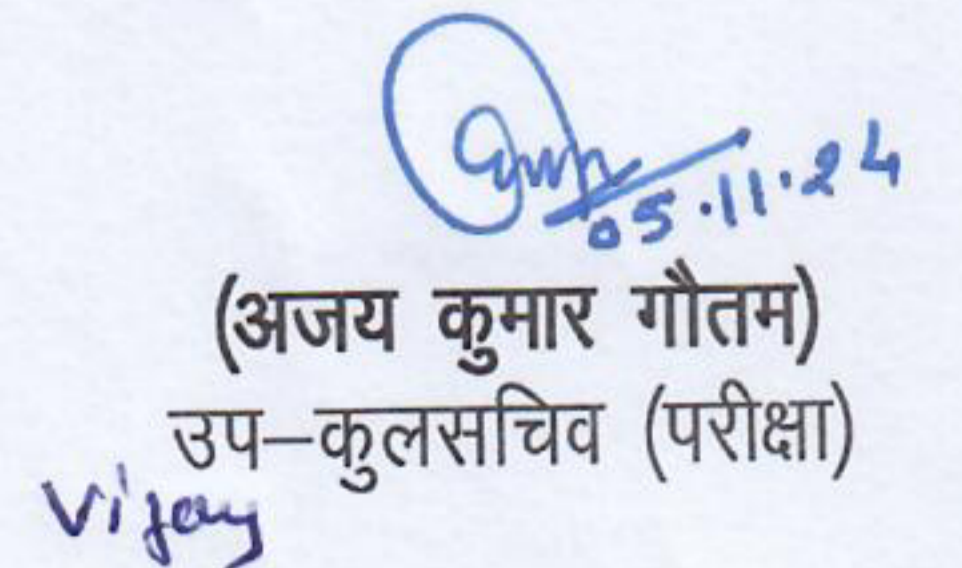 05.11.24
(अजय कुमार गौतम)
उप–कुलसचिव (परीक्षा)
Vijay